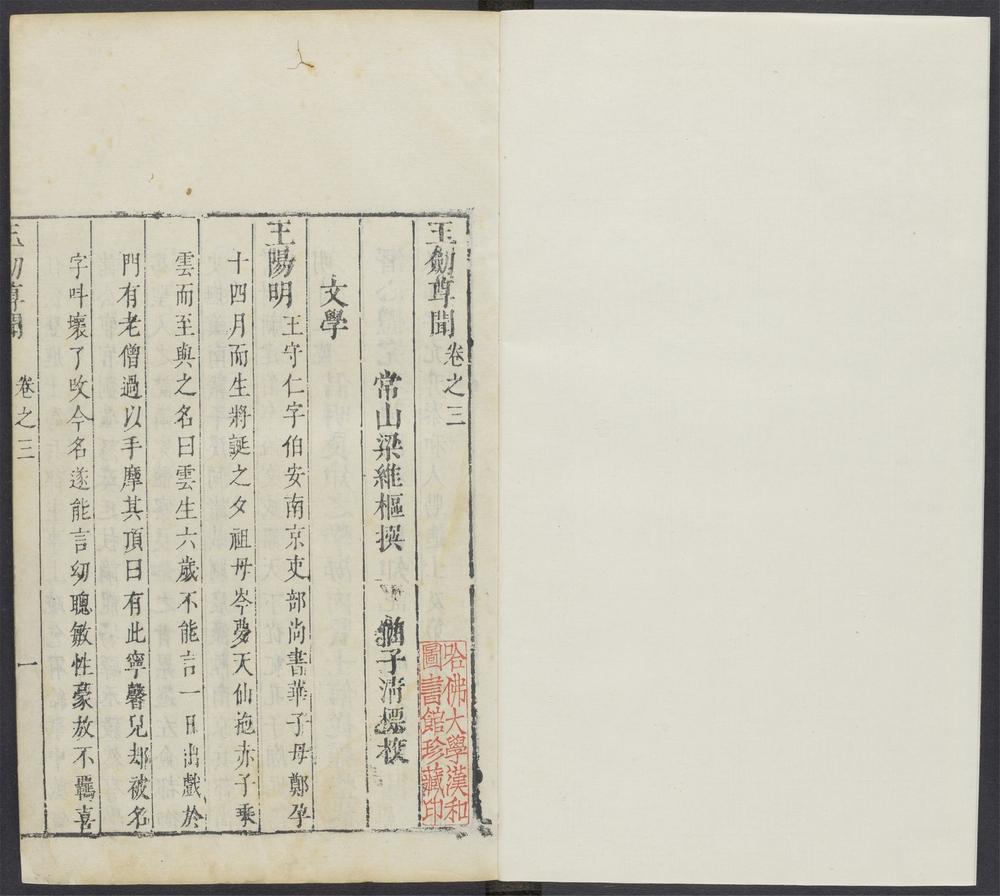 玉劔尊聞卷之三
常山梁維樞撰 猶子清標校
文學
王陽明王守仁字伯安南京吏部尚書華子母鄭孕
十四月而生將誕之夕祖母岑夢天仙抱赤子乘
雲而至與之名曰雲生六歲不能言一日出戲於
門有老僧過以手摩其頂曰有此寧馨兒却被名
字呌壞了改今名遂能言幼聰敏性豪放不羈喜
玉劔尊聞 卷之三 一
哈佛大學漢和
圖書館珍藏印